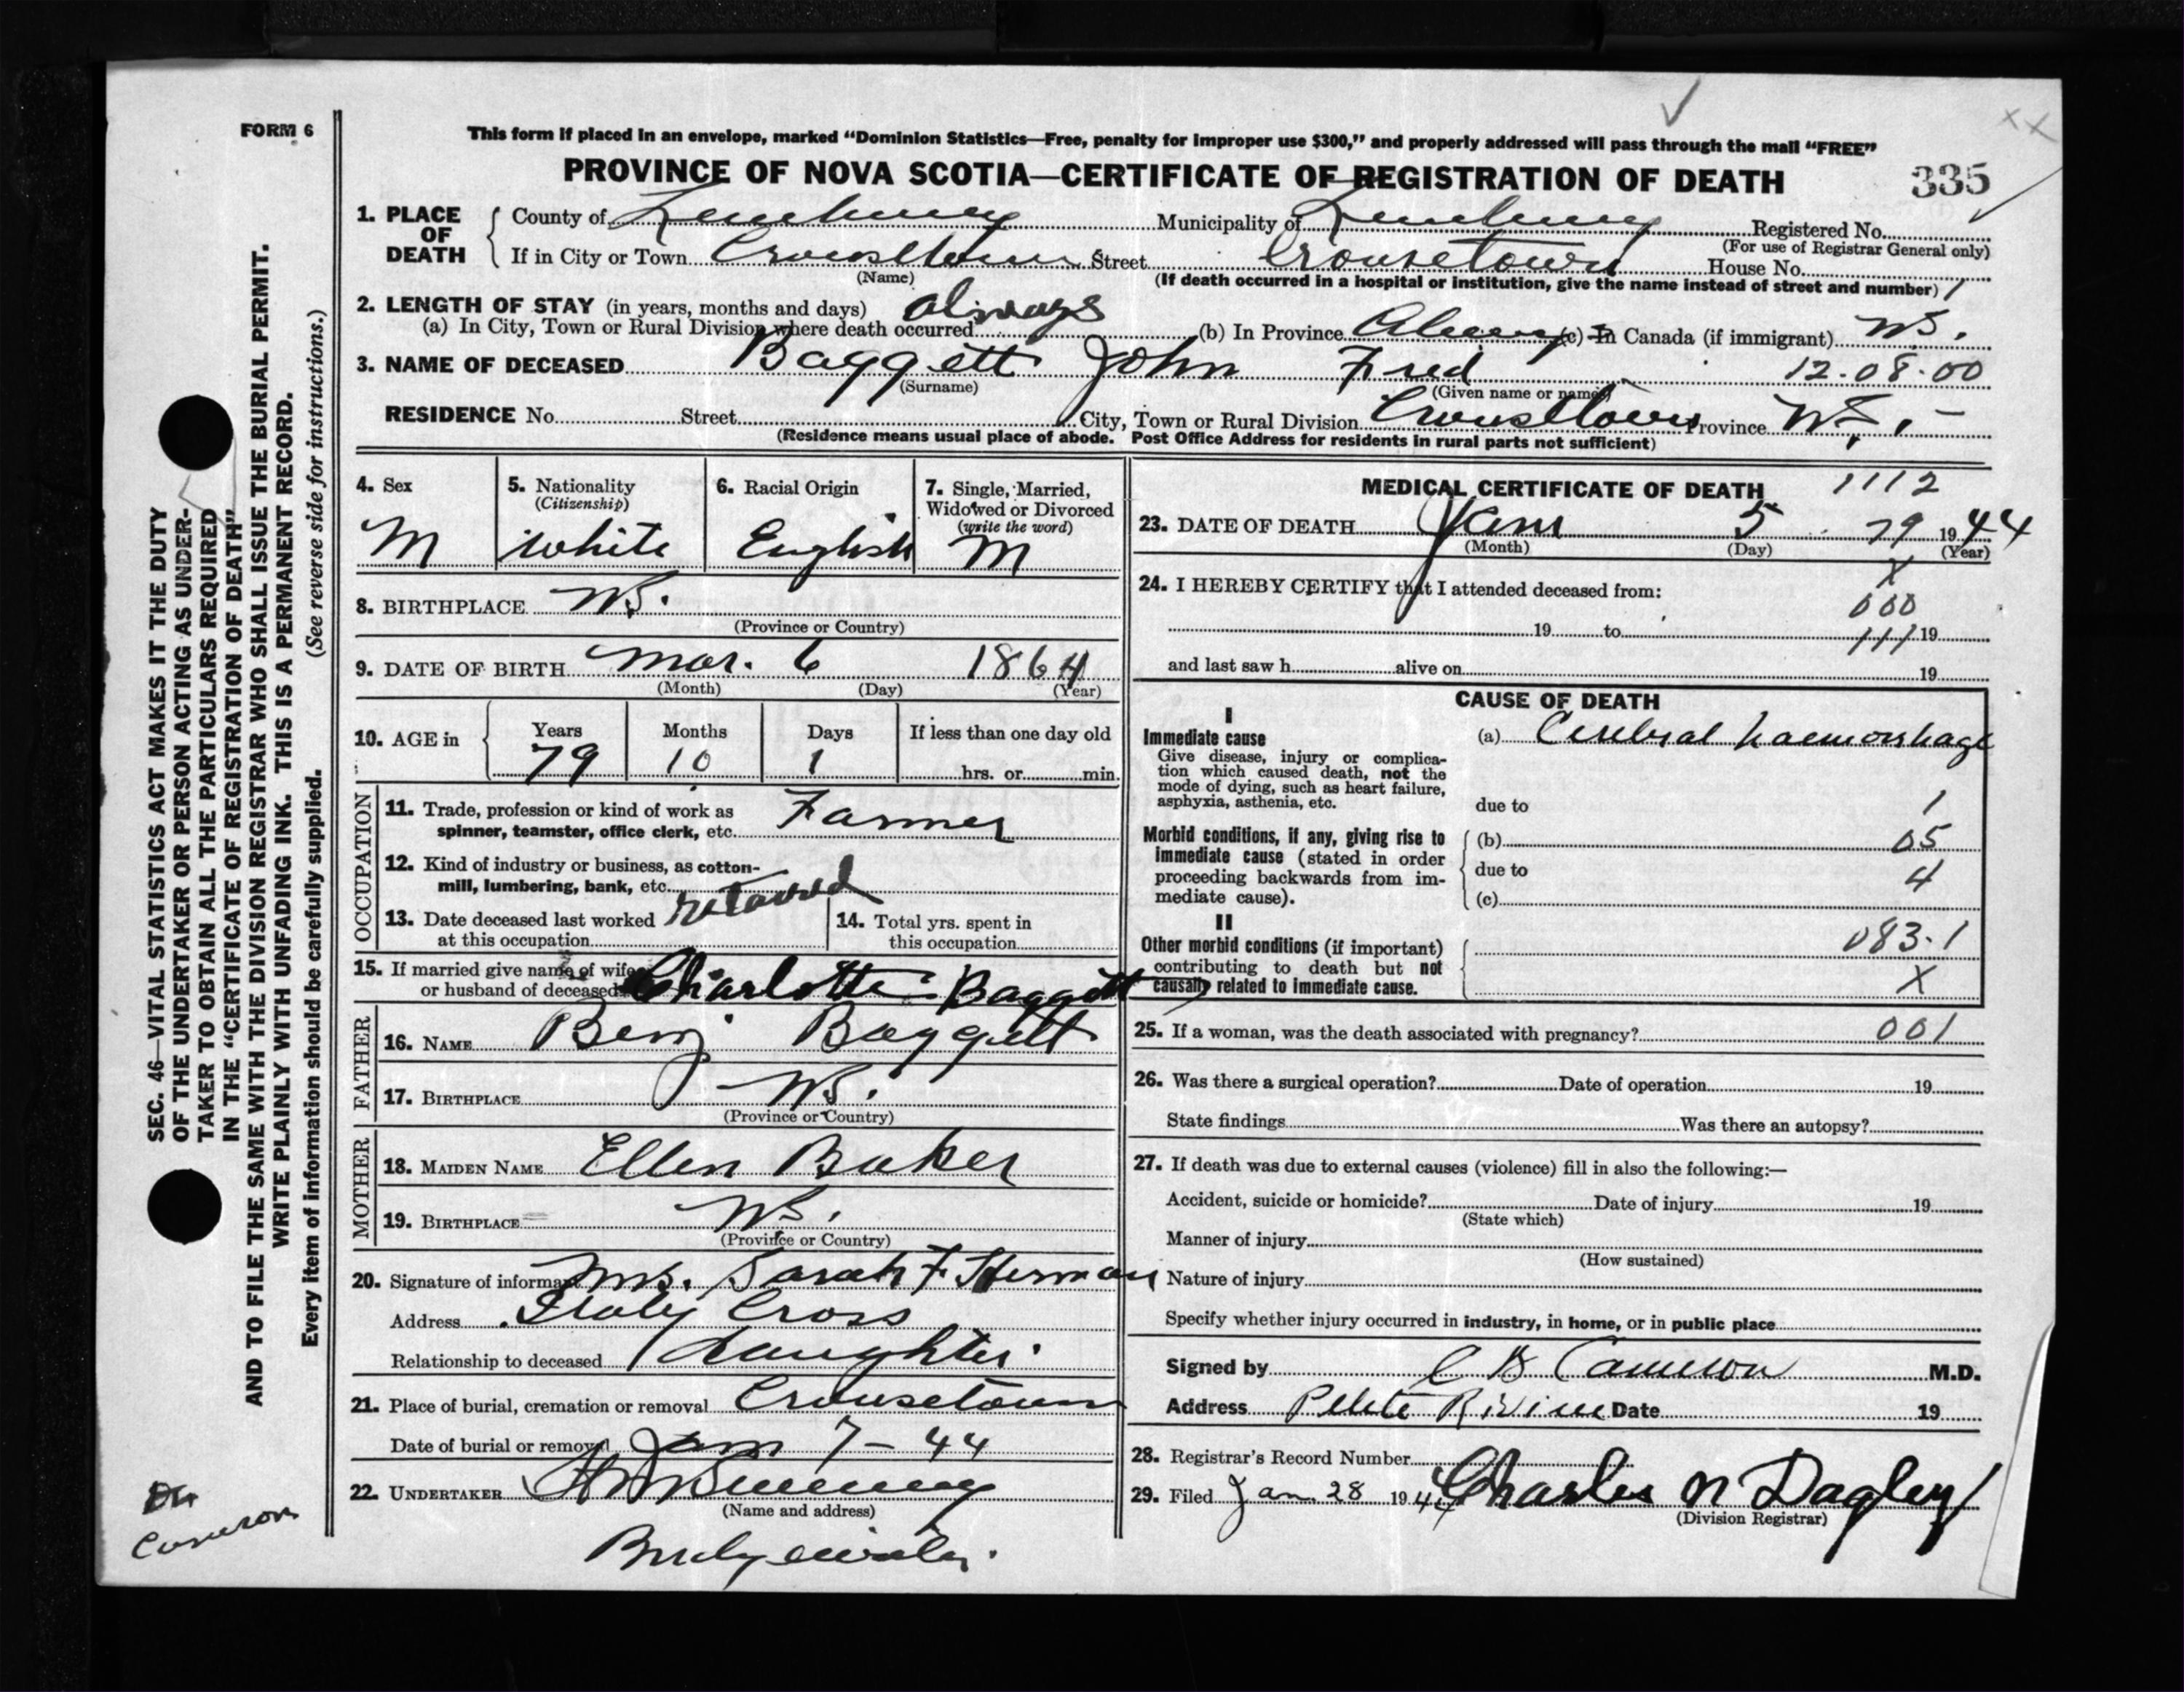 FORM 6
This form if placed in an envelope, marked “Dominion Statistics—Free, penalty for improper use $300,” and properly addressed will pass through the mail “FREE”
PROVINCE OF NOVA SCOTIA—CERTIFICATE OF REGISTRATION OF DEATH
335
1. PLACE OF DEATH
County of Lunenburg Municipality of Lunenburg Registered No.
(For use of Registrar General only)
If in City or Town Crousetown Street Crousetown House No.
(Name) (If death occurred in a hospital or institution, give the name instead of street and number)
2. LENGTH OF STAY (in years, months and days) always
(a) In City, Town or Rural Division where death occurred (b) In Province Always (c) In Canada (if immigrant) NS.
3. NAME OF DECEASED Baggett John Fred 12.08.00
(Surname) (Given name or names)
RESIDENCE No. Street City, Town or Rural Division Crousetown Province N.S.
(Residence means usual place of abode. Post Office Address for residents in rural parts not sufficient)
4. Sex
M
5. Nationality
(Citizenship)
white
6. Racial Origin
English
7. Single, Married, Widowed or Divorced
(write the word)
M
8. BIRTHPLACE NS.
(Province or Country)
9. DATE OF BIRTH Mar. 6 1864
(Month) (Day) (Year)
10. AGE in
Years Months Days If less than one day old
79 10 1 hrs. or min.
OCCUPATION
11. Trade, profession or kind of work as spinner, teamster, office clerk, etc. Farmer
12. Kind of industry or business, as cotton-mill, lumbering, bank, etc.
13. Date deceased last worked at this occupation
14. Total yrs. spent in this occupation
15. If married give name of wife or husband of deceased Charlotte Baggett
FATHER
16. NAME Benj Baggett
17. BIRTHPLACE NS.
(Province or Country)
MOTHER
18. MAIDEN NAME Ellen Baker
19. BIRTHPLACE NS.
(Province or Country)
20. Signature of informant Mrs. Sarah F Herman
Address Italy Cross
Relationship to deceased daughter
21. Place of burial, cremation or removal Crousetown
Date of burial or removal Jan 7 - 44
22. UNDERTAKER
(Name and address)
Bridgewater.
MEDICAL CERTIFICATE OF DEATH
1112
23. DATE OF DEATH Jan 5 79 1944
(Month) (Day) (Year)
24. I HEREBY CERTIFY that I attended deceased from:
X
000
19 to 111 19
and last saw h alive on 19
CAUSE OF DEATH
I
Immediate cause
Give disease, injury or complication which caused death, not the mode of dying, such as heart failure, asphyxia, asthenia, etc.
(a) Cerebral haemorrhage
due to 1
Morbid conditions, if any, giving rise to immediate cause (stated in order proceeding backwards from immediate cause).
(b) 05
due to 4
(c)
II
Other morbid conditions (if important) contributing to death but not causally related to immediate cause.
083.1
X
25. If a woman, was the death associated with pregnancy? 001
26. Was there a surgical operation? Date of operation 19
State findings Was there an autopsy?
27. If death was due to external causes (violence) fill in also the following:—
Accident, suicide or homicide? Date of injury 19
(State which)
Manner of injury
(How sustained)
Nature of injury
Specify whether injury occurred in industry, in home, or in public place
Signed by C B Cameron M.D.
Address Petite Riviere Date 19
28. Registrar's Record Number
29. Filed Jan 28 1944 Charles N Dagley
(Division Registrar)
SEC. 46—VITAL STATISTICS ACT MAKES IT THE DUTY
OF THE UNDERTAKER OR PERSON ACTING AS UNDER-
TAKER TO OBTAIN ALL THE PARTICULARS REQUIRED
IN THE “CERTIFICATE OF REGISTRATION OF DEATH”
AND TO FILE THE SAME WITH THE DIVISION REGISTRAR WHO SHALL ISSUE THE BURIAL PERMIT.
WRITE PLAINLY WITH UNFADING INK. THIS IS A PERMANENT RECORD.
Every item of information should be carefully supplied. (See reverse side for instructions.)
Dr
Cameron